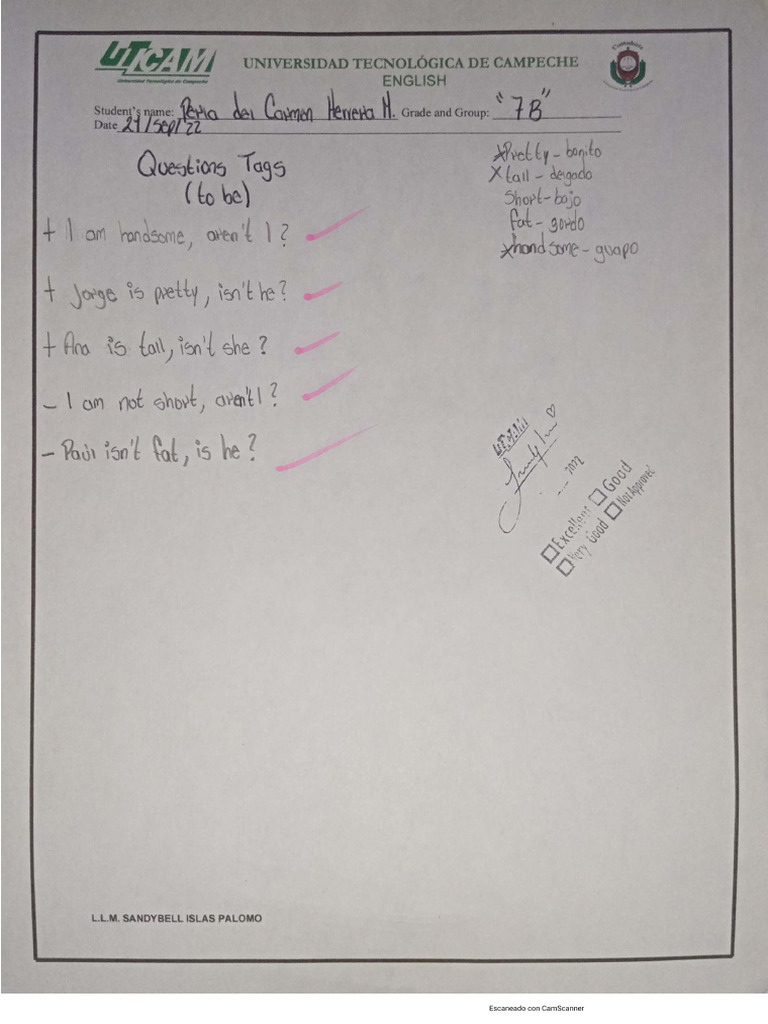 UTCAM
Universidad Tecnológica de Campeche
UNIVERSIDAD TECNOLÓGICA DE CAMPECHE
ENGLISH
Student's name: Perla del Carmen Herrera M. Grade and Group: "7B"
Date 21/Sep/22
Questions Tags
(to be)
+ I am handsome, aren't I?
+ Jorge is pretty, isn't he?
+ Ana is tall, isn't she?
- I am not short, aren't I?
- Paul isn't fat, is he?
x Pretty - bonito
x tall - delgado
short - bajo
fat - gordo
x handsome - guapo
2022
Excellent Good
Very Good Not Approved
L.L.M. SANDYBELL ISLAS PALOMO
Escaneado con CamScanner